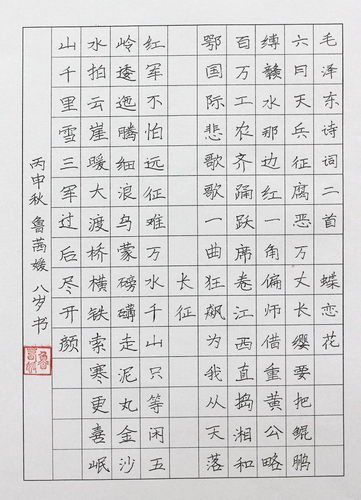 毛泽东诗词二首 蝶恋花
六月天兵征腐恶万丈长缨要把鲲鹏
缚赣水那边红一角偏师借重黄公略
百万工农齐踊跃席卷江西直捣湘和
鄂国际悲歌歌一曲狂飙为我从天落
长征
红军不怕远征难万水千山只等闲五
岭逶迤腾细浪乌蒙磅礴走泥丸金沙
水拍云崖暖大渡桥横铁索寒更喜岷
山千里雪三军过后尽开颜
丙申秋 鲁茜媛 八岁书